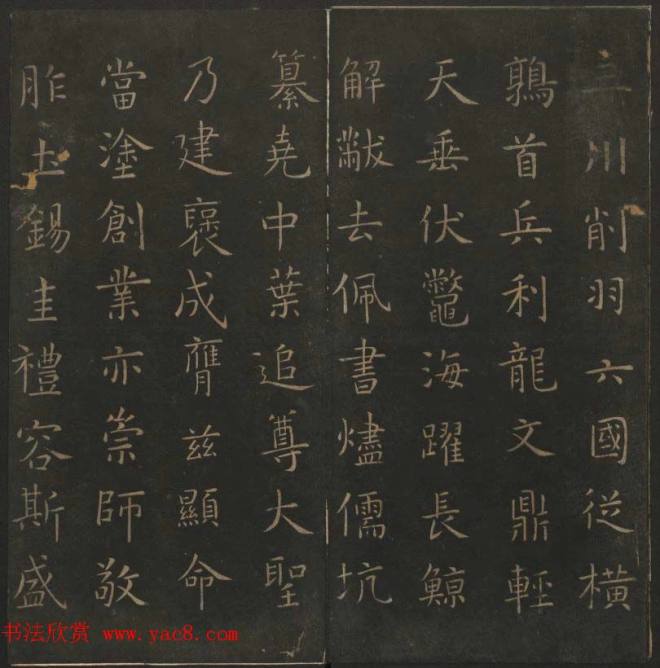 三川削羽六國從橫
鶉首兵利龍文鼎輕
天垂伏鼈海躍長鯨
解黻去佩書燼儒坑
纂堯中葉追尊大聖
乃建褒成膺兹顯命
當塗創業亦崇師敬
胙土錫圭禮容斯盛
书法欣赏 www.yac8.com